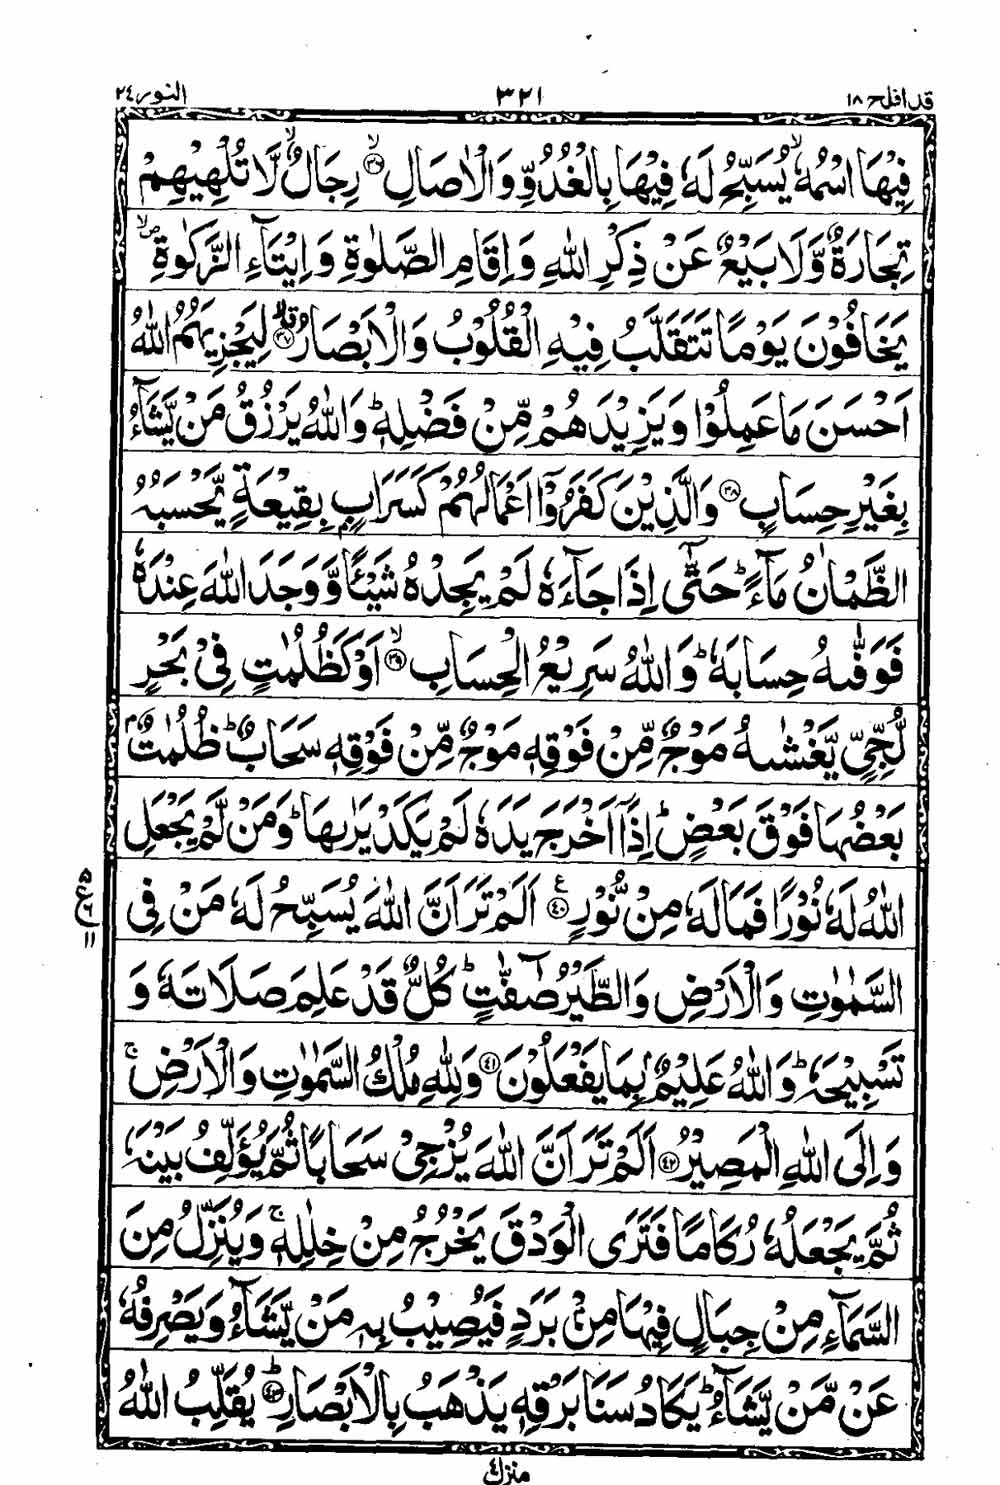 قد افلح ١٨
٣٢١
النور ٢٤
فِيْهَا اسْمُهٗ ۙ يُسَبِّحُ لَهٗ فِيْهَا بِالْغُدُوِّ وَالْاٰصَالِ ﴿۳۶﴾ۙ رِجَالٌ ۙ لَّا تُلْهِيْهِمْ
تِجَارَةٌ وَّلَا بَيْعٌ عَنْ ذِكْرِ اللّٰهِ وَاِقَامِ الصَّلٰوةِ وَاِيْتَآءِ الزَّكٰوةِ ۙ ص
يَخَافُوْنَ يَوْمًا تَتَقَلَّبُ فِيْهِ الْقُلُوْبُ وَالْاَبْصَارُ ﴿۳۷﴾ۙ ق لِيَجْزِيَهُمُ اللّٰهُ
اَحْسَنَ مَا عَمِلُوْا وَيَزِيْدَهُمْ مِّنْ فَضْلِهٖ ؕ وَاللّٰهُ يَرْزُقُ مَنْ يَّشَآءُ
بِغَيْرِ حِسَابٍ ﴿۳۸﴾ وَالَّذِيْنَ كَفَرُوْۤا اَعْمَالُهُمْ كَسَرَابٍۭ بِقِيْعَةٍ يَّحْسَبُهُ
الظَّمْاٰنُ مَآءً ؕ حَتّٰۤى اِذَا جَآءَهٗ لَمْ يَجِدْهُ شَيْـًٔا وَّوَجَدَ اللّٰهَ عِنْدَهٗ
فَوَفّٰىهُ حِسَابَهٗ ؕ وَاللّٰهُ سَرِيْعُ الْحِسَابِ ﴿۳۹﴾ۙ اَوْ كَظُلُمٰتٍ فِيْ بَحْرٍ
لُّجِّيٍّ يَّغْشٰىهُ مَوْجٌ مِّنْ فَوْقِهٖ مَوْجٌ مِّنْ فَوْقِهٖ سَحَابٌ ؕ ظُلُمٰتٌۢ
بَعْضُهَا فَوْقَ بَعْضٍ ؕ اِذَاۤ اَخْرَجَ يَدَهٗ لَمْ يَكَدْ يَرٰىهَا ؕ وَمَنْ لَّمْ يَجْعَلِ
اللّٰهُ لَهٗ نُوْرًا فَمَا لَهٗ مِنْ نُّوْرٍ ﴿۴۰﴾ ع اَلَمْ تَرَ اَنَّ اللّٰهَ يُسَبِّحُ لَهٗ مَنْ فِي
٥
ع ٦
١١
السَّمٰوٰتِ وَالْاَرْضِ وَالطَّيْرُ صٰٓفّٰتٍ ؕ كُلٌّ قَدْ عَلِمَ صَلَاتَهٗ وَ
تَسْبِيْحَهٗ ؕ وَاللّٰهُ عَلِيْمٌۢ بِمَا يَفْعَلُوْنَ ﴿۴۱﴾ وَلِلّٰهِ مُلْكُ السَّمٰوٰتِ وَالْاَرْضِ ۚ
وَاِلَى اللّٰهِ الْمَصِيْرُ ﴿۴۲﴾ اَلَمْ تَرَ اَنَّ اللّٰهَ يُزْجِيْ سَحَابًا ثُمَّ يُؤَلِّفُ بَيْنَهٗ
ثُمَّ يَجْعَلُهٗ رُكَامًا فَتَرَى الْوَدْقَ يَخْرُجُ مِنْ خِلٰلِهٖ ۚ وَيُنَزِّلُ مِنَ
السَّمَآءِ مِنْ جِبَالٍ فِيْهَا مِنْۢ بَرَدٍ فَيُصِيْبُ بِهٖ مَنْ يَّشَآءُ وَيَصْرِفُهٗ
عَنْ مَّنْ يَّشَآءُ ؕ يَكَادُ سَنَا بَرْقِهٖ يَذْهَبُ بِالْاَبْصَارِ ﴿۴۳﴾ؕ يُقَلِّبُ اللّٰهُ
منزل ٤